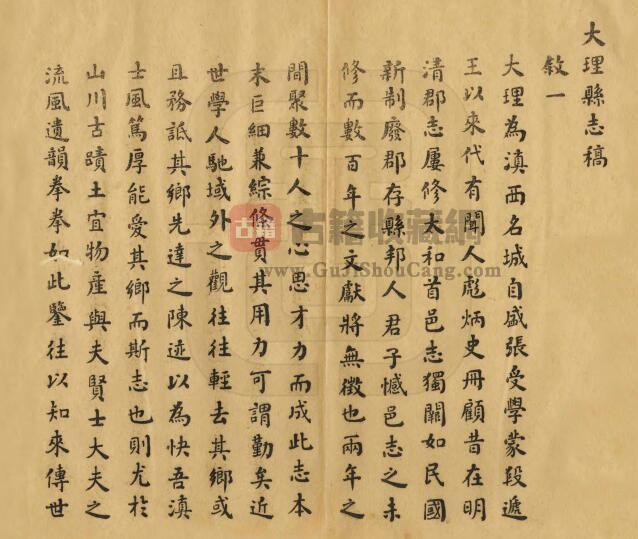 大理縣志稿
敘一
大理為滇西名城自盛張受學蒙段遞
王以來代有聞人彪炳史冊顧昔在明
清郡志屢修太和首邑志獨闕如民國
新制廢郡存縣邦人君子憾邑志之未
修而數百年之文獻將無徵也兩年之
間聚數十人之心思才力而成此志本
末巨細兼綜條貫其用力可謂勤矣近
世學人馳域外之觀往往輕去其鄉或
且務詆其鄉先達之陳迹以為快吾滇
士風篤厚能愛其鄉而斯志也則尤於
山川古蹟土宜物產與夫賢士大夫之
流風遺韻拳拳如此鑒往以知來傳世
古籍
古籍收藏網
www.GuJiShouCang.com